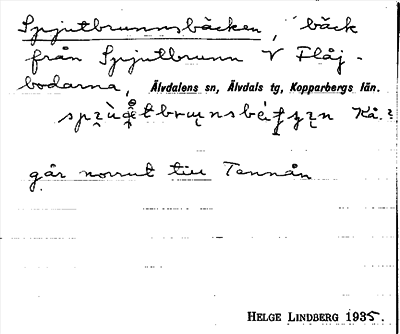 Spjutbrunnsbäcken, bäck
från Spjutbrunn V Flåj-
bodarna, Älvdalens sn, Älvdals tg, Kopparbergs län.
Kå.
går norrut till Tennån
HELGE LINDBERG 1935.